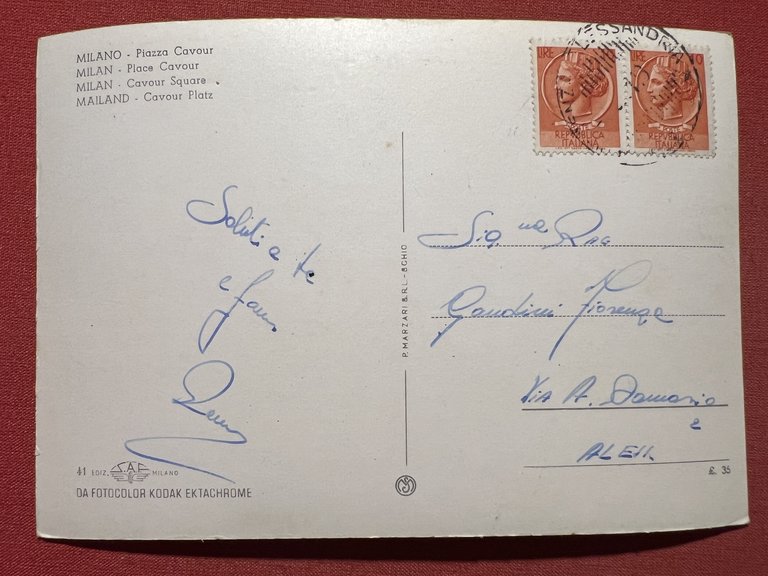 MILANO - Piazza Cavour
MILAN - Place Cavour
MILAN - Cavour Square
MAILAND - Cavour Platz
ALESSANDRIA
LIRE
REPUBBLICA
ITALIANA
LIRE 10
REPUBBLICA
ITALIANA
Saluti a te
e fam
Sig.na Rag
Gandini Fiorenza
VIA A.
2
P. MARZARI S.R.L. - SCHIO
41 EDIZ. S.A.F. MILANO
DA FOTOCOLOR KODAK EKTACHROME
£. 35